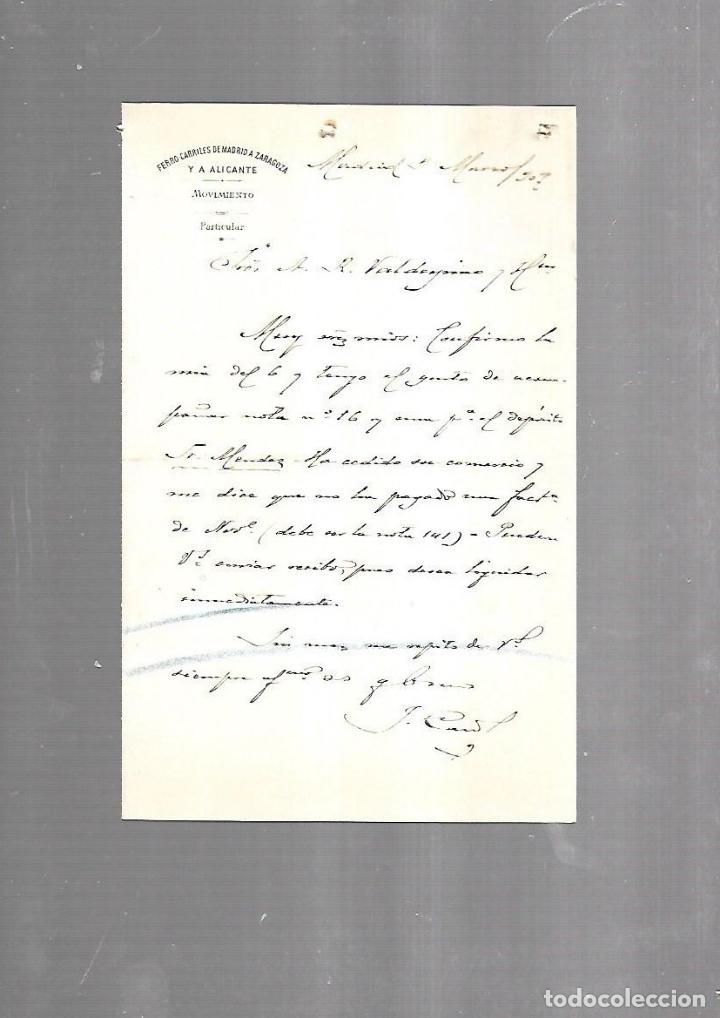 FERRO-CARRILES DE MADRID A ZARAGOZA
Y A ALICANTE
MOVIMIENTO
Particular
Madrid Marzo/
Sres. A. R. Valdespino y Hno
Muy sres mios: Confirmo la
mia del 6 y tengo el gusto de acom-
pañar nota nº 16 y una pª el depósito
Sr. Mendez - Ha cedido su comercio y
me dice que no ha pagado una factª
de Nove (debe ser la nota 141) - Pueden
Vs enviar recibo, pues desea liquidar
inmediatamente.
Sin mas me repito de Vs
siempre afmo ss q b sus
J.
todocoleccion
todocoleccion.net